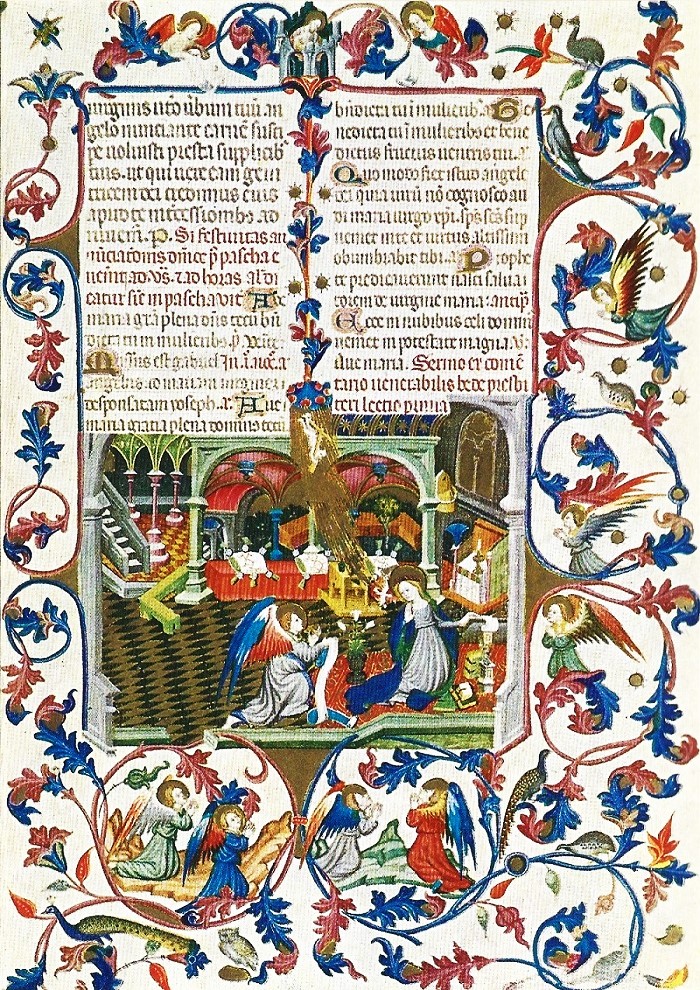 uirginis utero uerbum tuū an
gelo nunciante carnē susci
pe uoluisti presta supplicib
tuis. ut qui uere eam geni
tricem dei credimus eius
apud te intercessionibs ad
iuuem̃. p. Si festiuitas an
nūciatonis dnice p pascha e
uenit ad vs. z ad horas al di
catur sic in pascha Aue
maria gra plena dñs tecū bn
dicta tu in mulieribs. p. Venite
Missus est gabriel In i. noc. a
angelus ad mariam uirginem
desponsatam yoseph. a. Aue
maria gratia plena dominus tecū
bndicta tu i mulierib. a. Be
nedicta tu i mulieribs et bene
dictus fructus uentris tui. a.
Quo modo fiet istud angele
dei quia uirū nō cognosco au
di maria uirgo xpi. sps scs sup
ueniet in te et uirtus altissimi
obumbrabit tibi. a. Prophe
te predicauerunt nasci salua
torem de uirgine maria. antip
Ecce in nubibus celi domin
ueniet in potestate magna. V.
Aue maria. Sermo ex comē
tario uenerabilis bede presbi
teri lectio prima